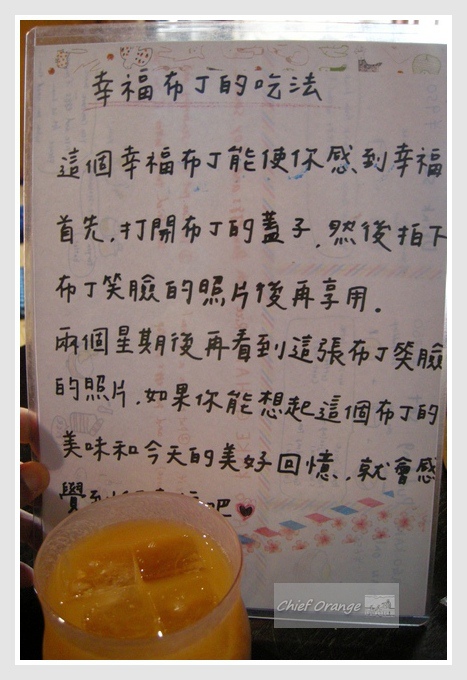 幸福布丁的吃法
這個幸福布丁能使你感到幸福
首先,打開布丁的蓋子,然後拍下
布丁笑臉的照片後再享用.
兩個星期後再看到這張布丁笑臉
的照片,如果你能想起這個布丁的
美味和今天的美好回憶,就會感
覺到 吧
Chief Orange